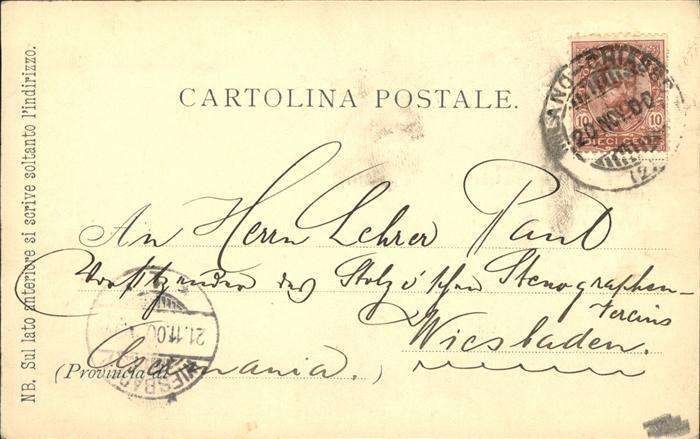 CARTOLINA POSTALE.
MILANO-CHIASSO
20 NOV. 00
(2
10 10
DIECI CENT
An Herrn Lehrer Paul
Vorsitzender des Stolze'schen Stenographen-
Vereins
Wiesbaden.
(Provincia di Germania.)
21.11.00
WIESBADEN
NB. Sul lato anteriore si scrive soltanto l'indirizzo.